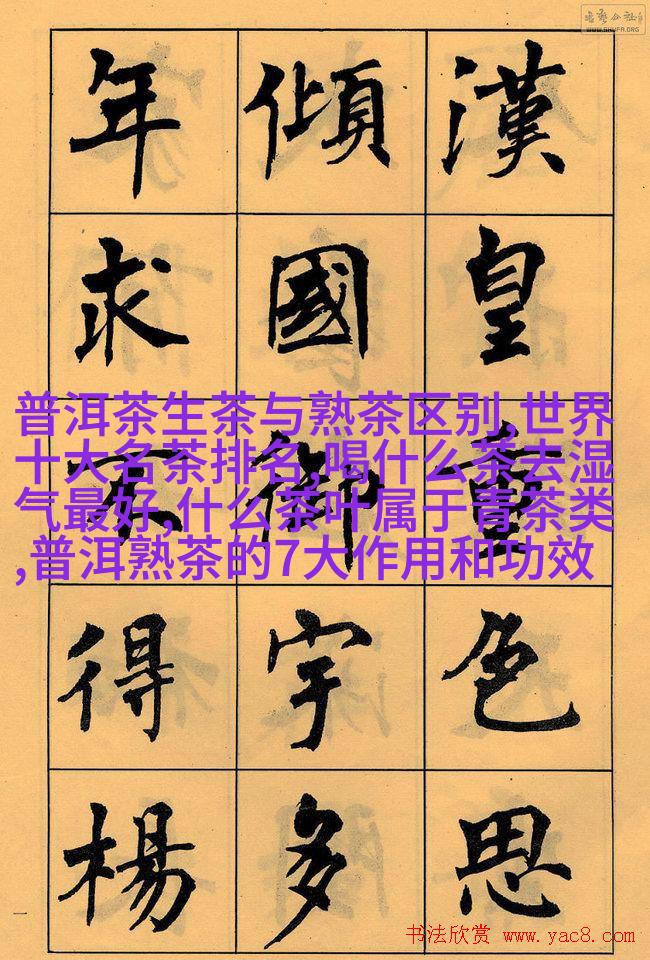 漢皇重色思
傾國御宇多
年求不得楊
普洱茶生茶与熟茶区别,世界
十大名茶排名,喝什么茶去湿
气最好,什么茶叶属于青茶类
,普洱熟茶的7大作用和功效
一
WWW.SHUFA.ORG
书法欣赏 www.yac8.com